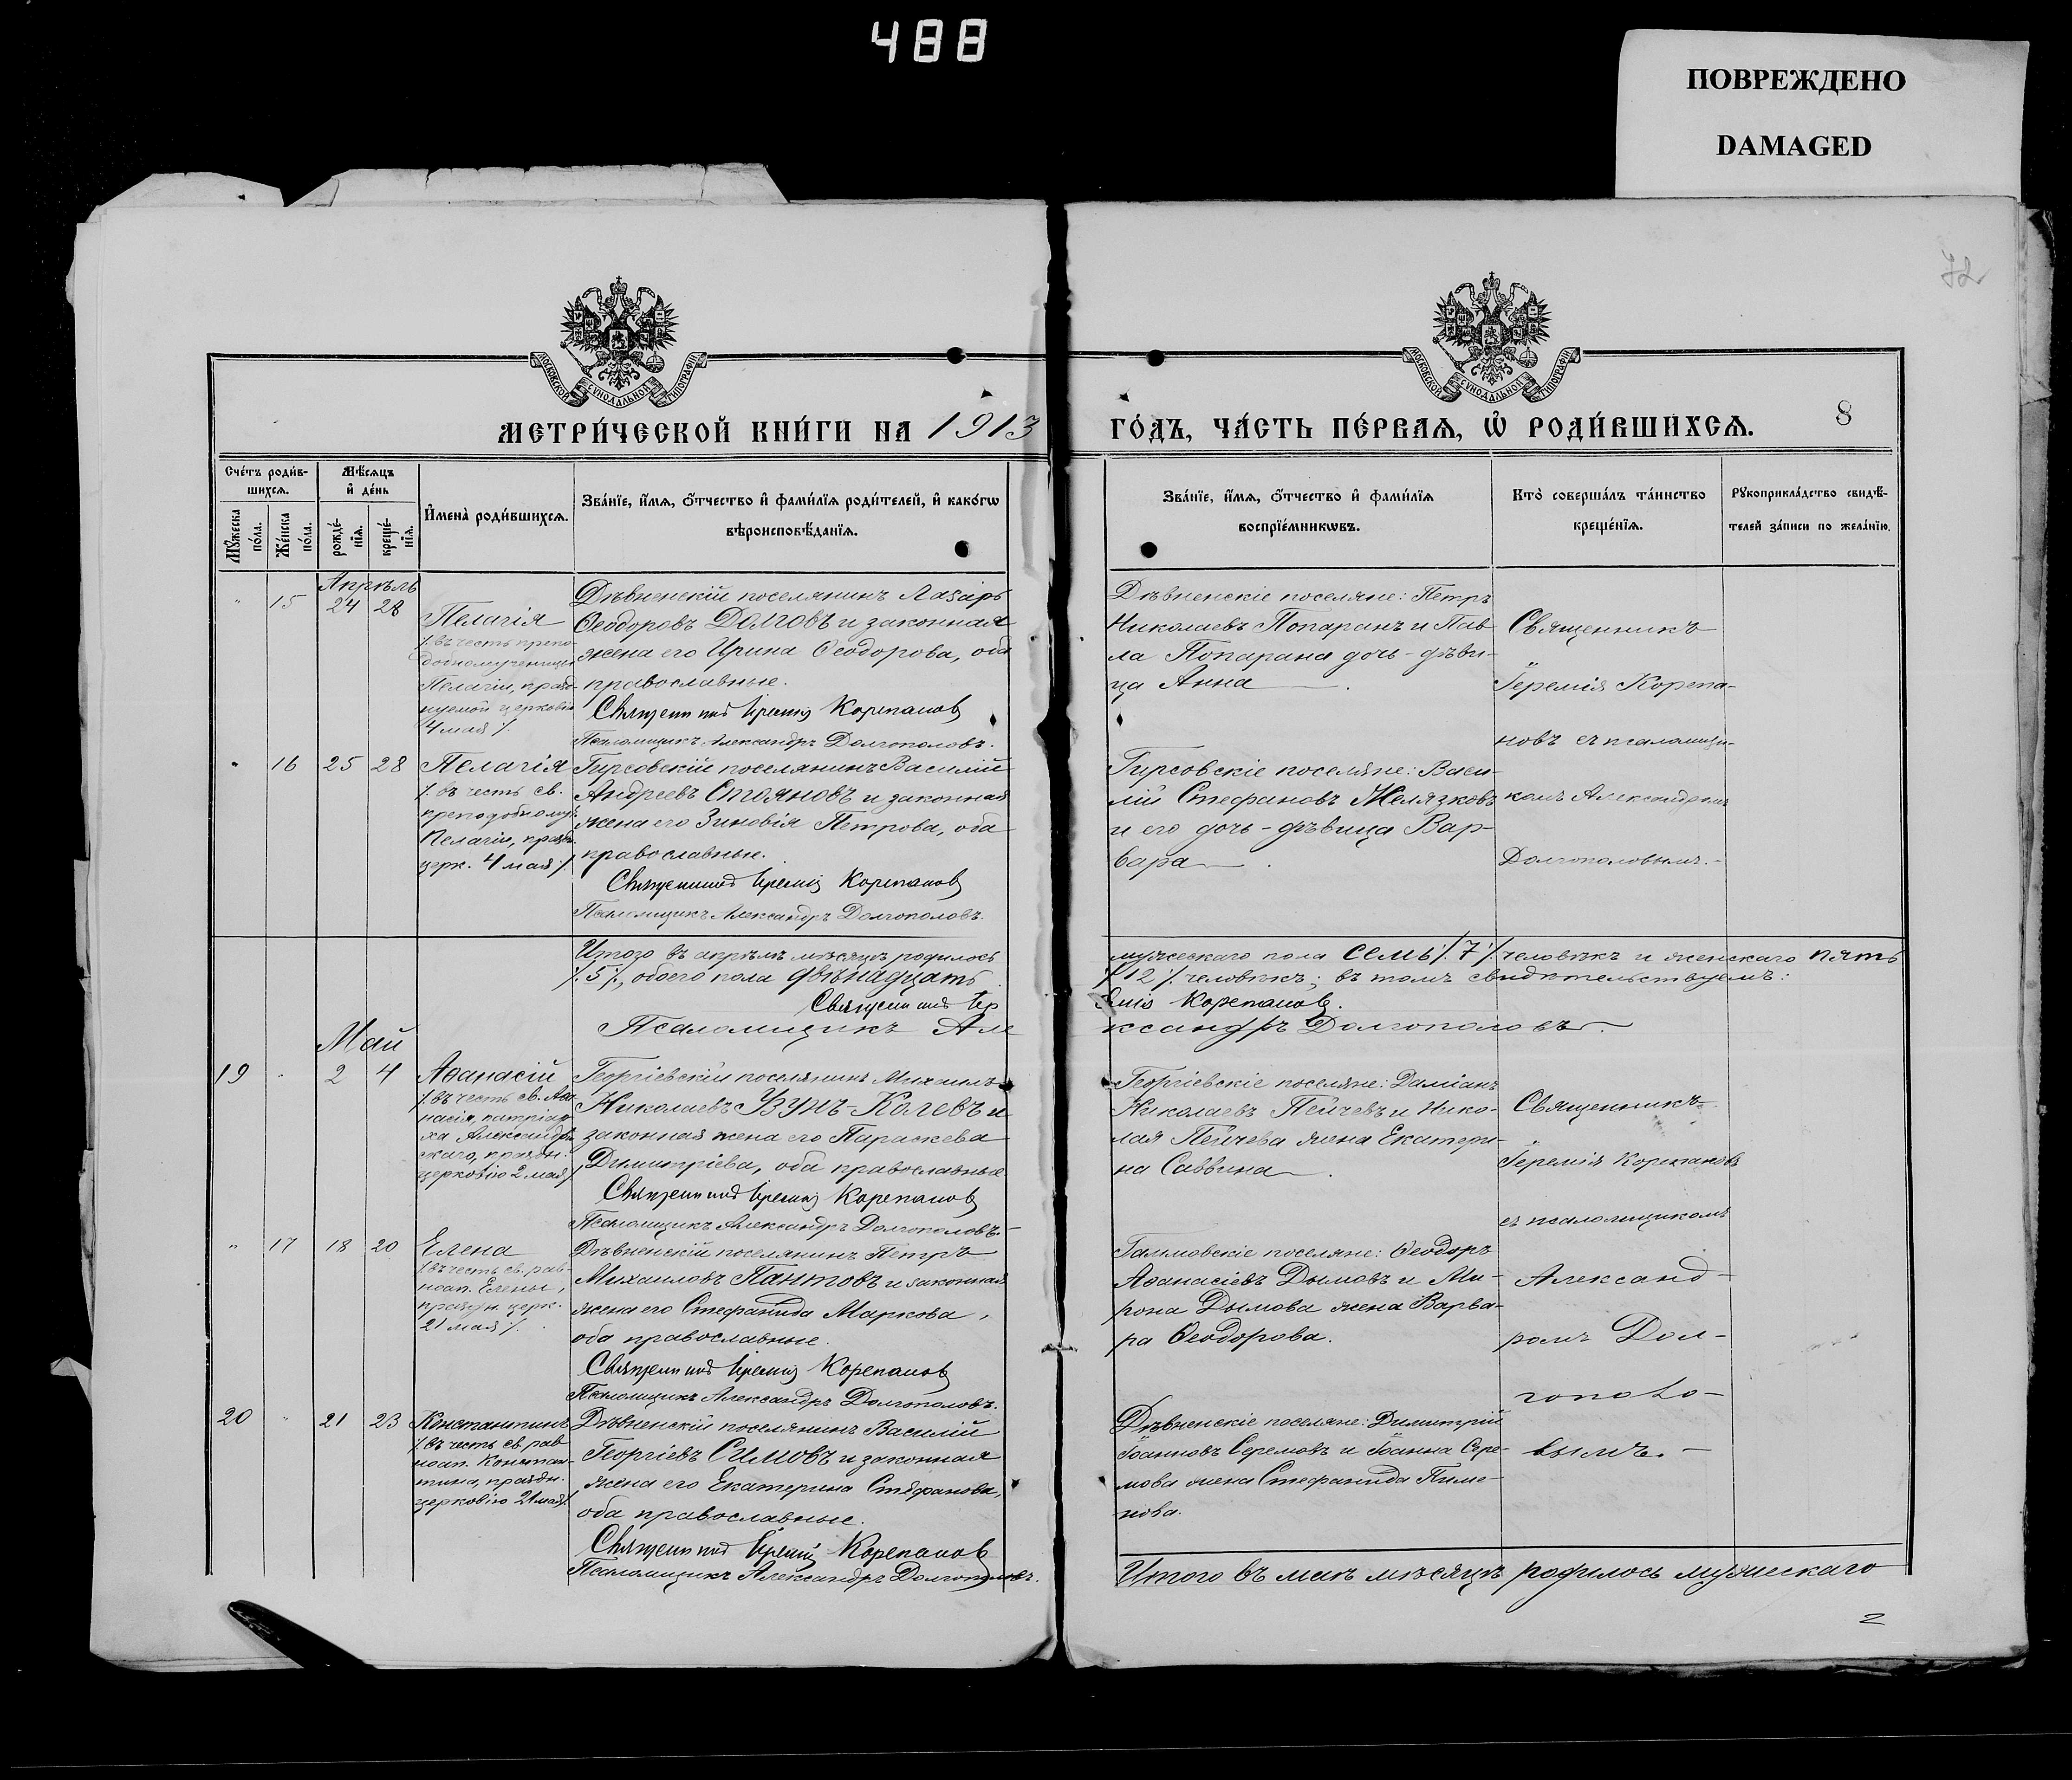 488
ПОВРЕЖДЕНО
DAMAGED
72
МОСКОВСКОЙ СѴНОДАЛЬНОЙ ТИПОГРАФІИ
МОСКОВСКОЙ СѴНОДАЛЬНОЙ ТИПОГРАФІИ
МЕТРИ́ЧЕСКОЙ КНИ́ГИ НА 1913
ГО́ДЪ, ЧА́СТЬ ПЕ́РВАѦ, Ѡ҆ РОДИ́ВШИХСѦ.
8
Сче́тъ роди́в-
шихсѧ.
Мѣ́сѧцъ
и҆ де́нь
Мꙋ́жеска
по́ла.
Же́нска
по́ла.
рожде́-
нїѧ.
креще́-
нїѧ.
И҆мена̀ роди́вшихсѧ.
Зва́нїе, и҆́мѧ, ѻ҆́тчество и҆ фами́лїѧ роди́телей, и҆ како́гѡ
вѣроисповѣ́данїѧ.
Зва́нїе, и҆́мѧ, ѻ҆́тчество и҆ фами́лїѧ
воспрїе́мникѡвъ.
Кто̀ соверша́лъ та́инство
креще́нїѧ.
Рꙋкоприкла́дство свидѣ́-
телей за́писи по жела́нїю.
Апрѣль
" 15 24 28
Пелагія
/въ честь препо-
добномученицы
Пелагіи, празд-
нуемой церковію
4 мая/.
Дѣвненскій поселянинъ Лазарь
Ѳеодоровъ Долговъ и законная
жена его Ирина Ѳеодорова, оба
православные.
Священникъ Іеремія Корепановъ
Псаломщикъ Александръ Долгополовъ.
Дѣвненскіе поселяне: Петръ
Николаевъ Попаранъ и Пав-
ла Попарана дочь-дѣви-
ца Анна
Священникъ
Іеремія Корепа-
новъ съ псаломщи-
комъ Александромъ
Долгополовымъ.-
" 16 25 28
Пелагія
/. въ честь св.
преподобномуч.
Пелагіи, празд.
церк. 4 мая/.
Гирсовскій поселянинъ Василій
Андреевъ Стояновъ и законная
жена его Зиновія Петрова, оба
православные.
Священникъ Іеремія Корепановъ
Псаломщикъ Александръ Долгополовъ.
Гирсовскіе поселяне: Васи-
лій Стефановъ Желязковъ
и его дочь-дѣвица Вар-
вара
Итого въ апрѣлѣ мѣсяцѣ родилось
мужескаго пола семь /.7/. человѣкъ и женскаго пять
/.5/., обоего пола двѣнадцать
/.12/. человѣкъ; въ томъ свидѣтельствуемъ:
Священникъ Іер
емія Корепановъ.
Псаломщикъ Але
ксандръ Долгополовъ.
Май
19 " 2 4
Аѳанасій
/.въ честь св. Аѳа-
насія, патріар-
ха Александрій-
скаго, праздн.
церковію 2 мая/.
Георгіевскій поселянинъ Михаилъ
Николаевъ Узунъ-Колевъ и
законная жена его Параскева
Димитріева, оба православные
Священникъ Іеремія Корепановъ
Псаломщикъ Александръ Долгополовъ.-
Георгіевскіе поселяне: Даміанъ
Николаевъ Пейчевъ и Нико-
лая Пейчева жена Екатери-
на Саввина
Священникъ
Іеремія Корепановъ
съ псаломщикомъ
Александ-
ромъ Дол-
гополо-
вымъ.-
" 17 18 20
Елена
/.въ честь св. рав-
ноап. Елены,
праздн. церк.
21 мая/.
Дѣвненскій поселянинъ Петръ
Михаиловъ Пантовъ и законная
жена его Стефанида Маркова,
оба православные.
Священникъ Іеремія Корепановъ
Псаломщикъ Александръ Долгополовъ.
Ѳеодоръ
Аѳанасіевъ Дымовъ и Ми-
рона Дымова жена Варва-
ра Ѳеодорова.
20 " 21 23
Константинъ
/.въ честь св. рав-
ноап. Констан-
тина, праздн.
церковію 21 мая/.
Дѣвненскій поселянинъ Василій
Георгіевъ Симовъ и законная
жена его Екатерина Стефанова,
оба православные.
Священникъ Іеремія Корепановъ
Псаломщикъ Александръ Долгополовъ.
Дѣвненскіе поселяне: Димитрій
Іоанновъ Серемовъ и Іоанна Сере-
мова жена Стефанида Пиме-
нова.
Итого въ маѣ мѣсяцѣ родилось мужескаго
2